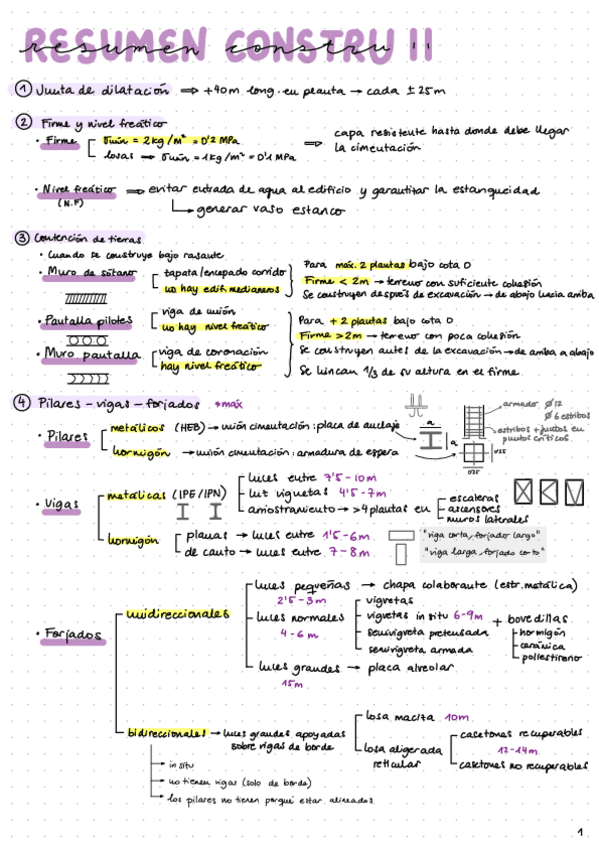 RESUMEN CONSTRU II
① Junta de dilatación ⇒ +40m long. en planta → cada ± 25m
② Firme y nivel freático
• Firme
σmín = 2kg/m² = 0'2 MPa
losas → σmín = 1kg/m² = 0'1 MPa
⇒ capa resistente hasta donde debe llegar
la cimentación
• Nivel freático ⇒ evitar entrada de agua al edificio y garantitar la estanqueidad
(N.F)
generar vaso estanco
③ Contención de tierras
• Cuando se construye bajo rasante
• Muro de sótano
tapata/encepado corrido
no hay edif. medianeros
Para máx. 2 plantas bajo cota 0
Firme < 2m → terreno con suficiente cohesión
Se construyen después de excavación → de abajo hacia arriba
• Pantalla pilotes
viga de unión
no hay nivel freático
• Muro pantalla
viga de coronación
hay nivel freático
Para + 2 plantas bajo cota 0
Firme > 2m → terreno con poca cohesión
Se construyen antes de la excavación → de arriba a abajo
Se hincan 1/3 de su altura en el firme
④ Pilares - vigas - forjados *máx
• Pilares
metálicos (HEB) → unión cimentación: placa de anclaje
hormigón → unión cimentación: armadura de espera
a
a
armado Ø12
Ø6 estribos
estribos + juntos en
puntos críticos
0'25
0'25
• Vigas
metálicas (IPE/IPN)
luces entre 7'5 - 10m
luz viguetas 4'5 - 7m
arriostramiento → >4 plantas en
escaleras
ascensores
muros laterales
hormigón
planas → luces entre 1'5 - 6m
de canto → luces entre 7 - 8m
"viga corta, forjado largo"
"viga larga, forjado corto"
• Forjados
unidireccionales
luces pequeñas → chapa colaborante (estr. metálica)
2'5 - 3m
luces normales
4 - 6m
viguetas
viguetas in situ 6-9m
semivigueta pretensada
semivigueta armada
+ bovedillas
hormigón
cerámica
poliestireno
luces grandes → placa alveolar
15m
bidireccionales → luces grandes apoyadas
sobre vigas de borde
losa maciza 10m
losa aligerada
reticular
casetones recuperables
12-14m
casetones no recuperables
in situ
no tienen vigas (solo de borde)
los pilares no tienen porqué estar alineados
1